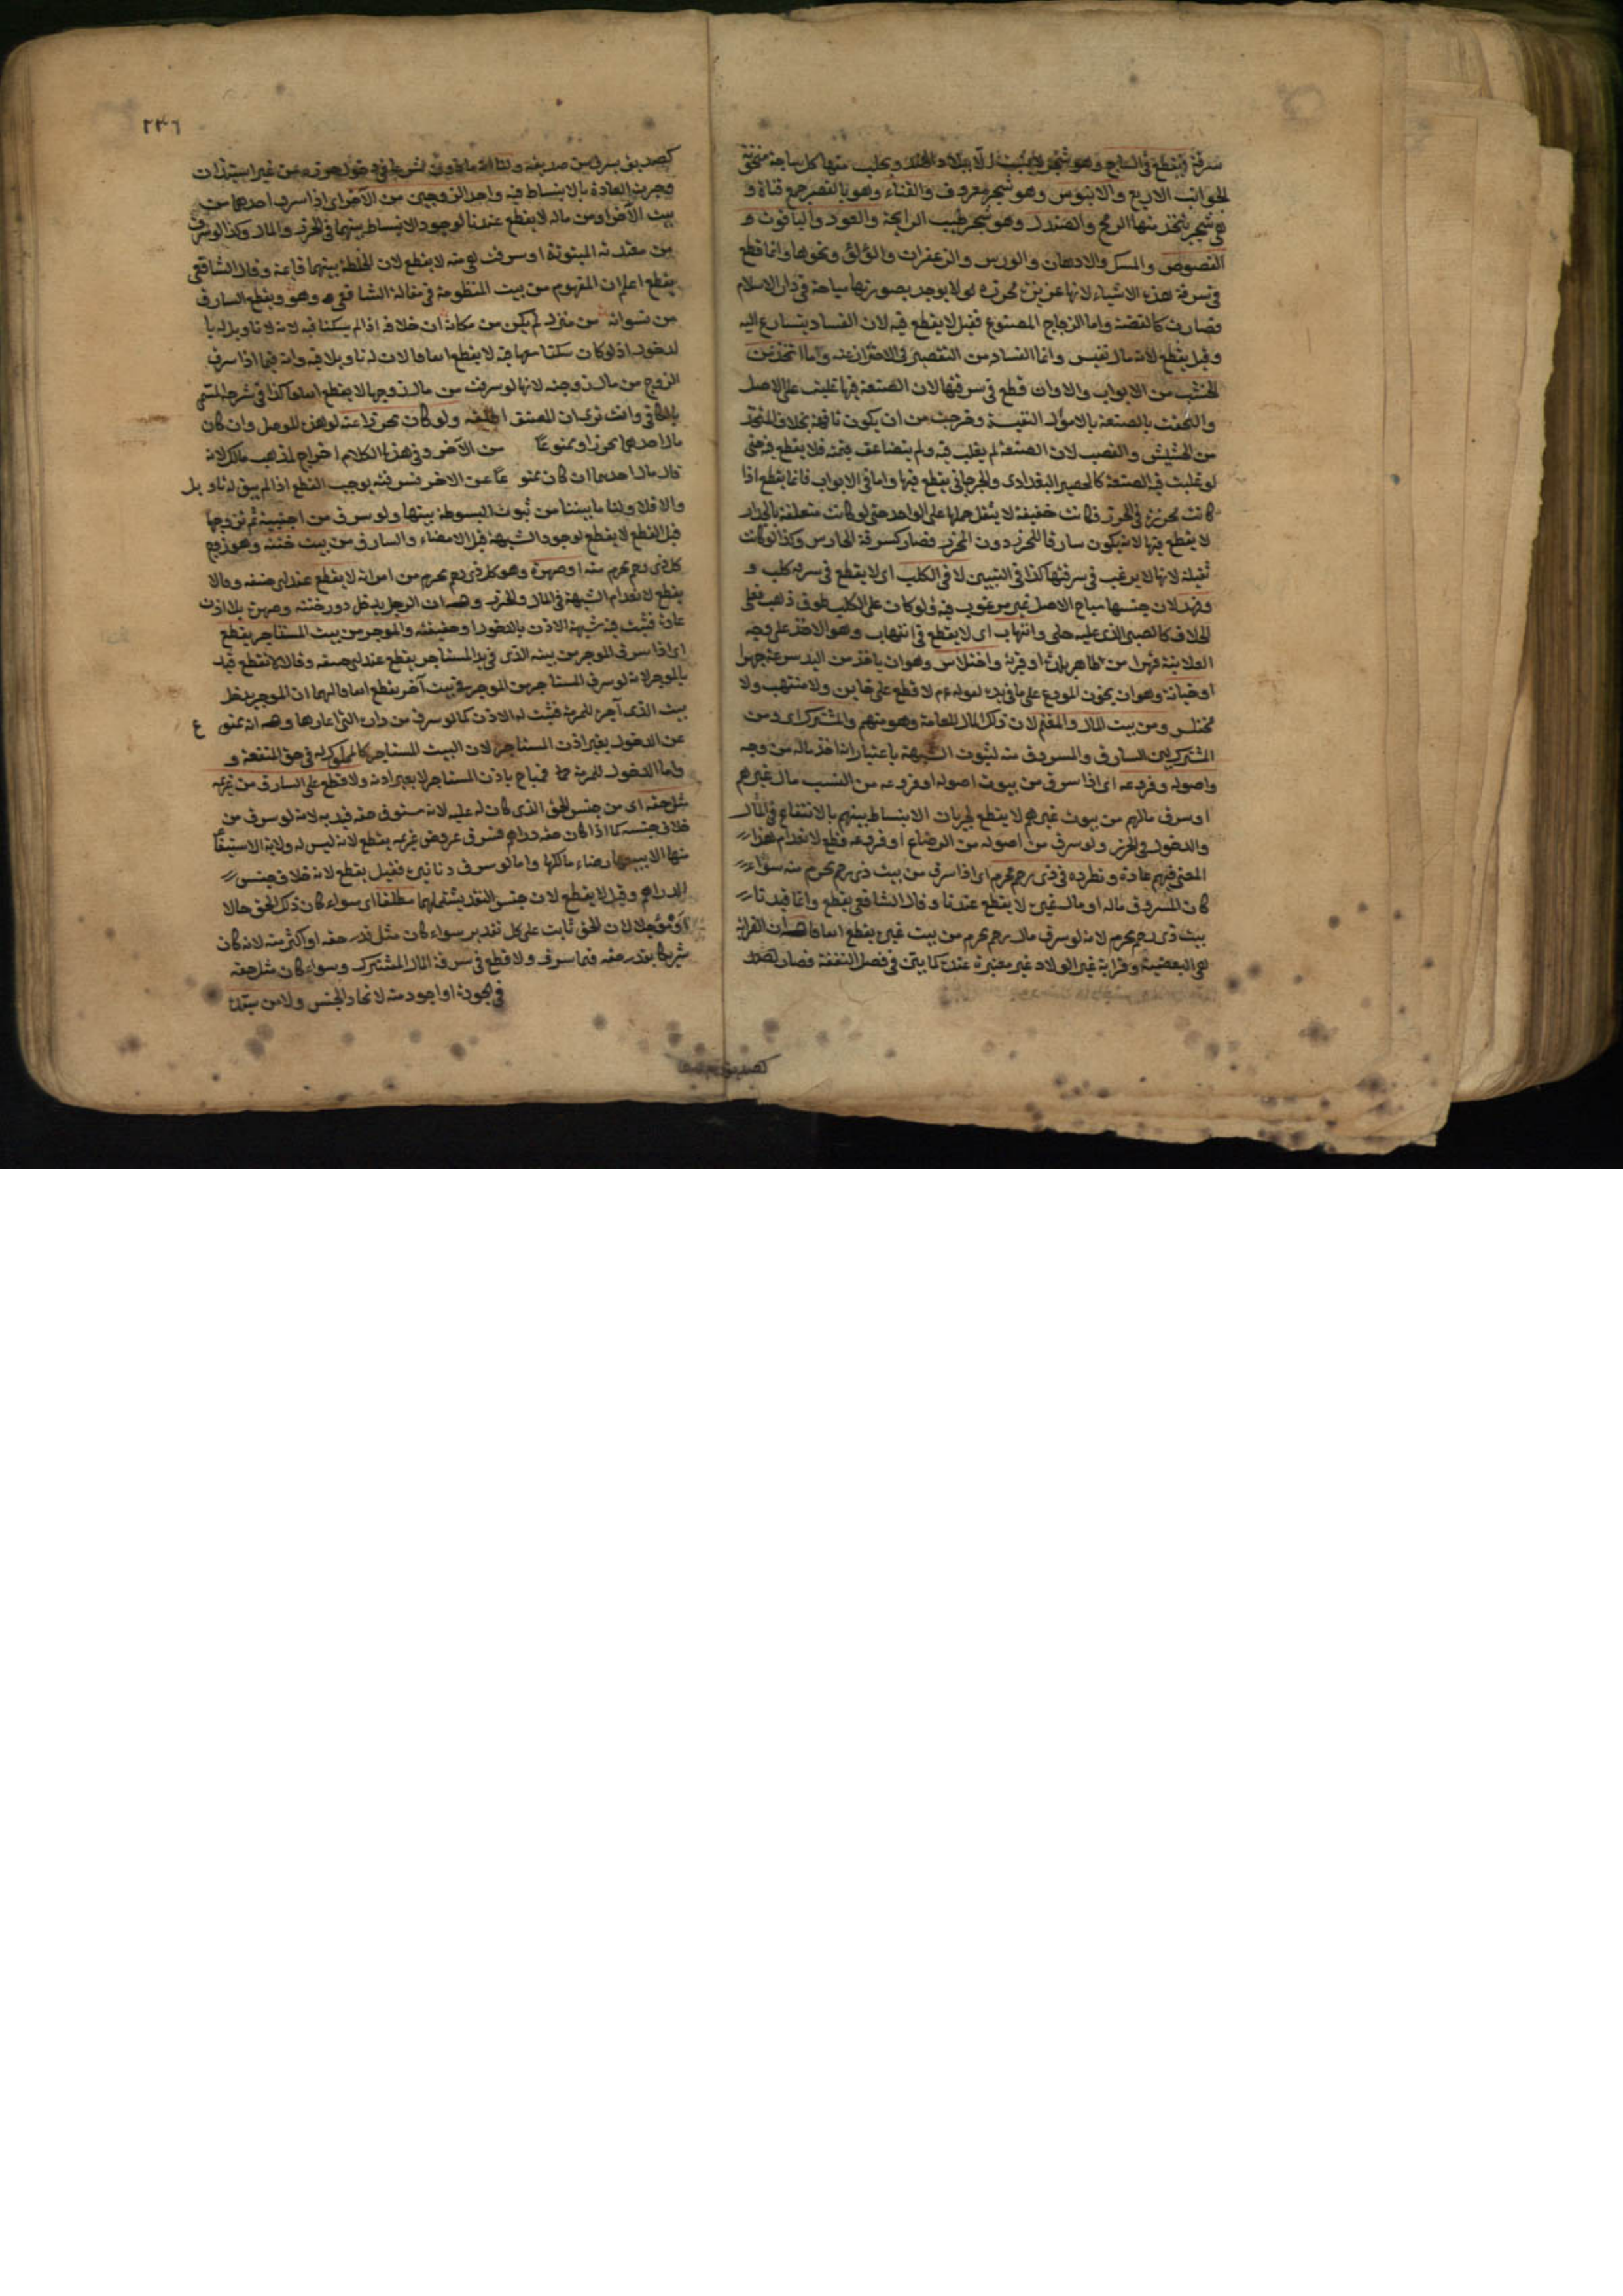 سرقة ويقطع في الساج وهو شجر لا ينبت الا ببلاد الهند ويجلب منها كل ساجة منحوتة
الجوانب الاربع والابنوس وهو شجر معروف والقناء وهو بالقصر جمع قناة و
هي شجر يتخذ منها الرمح والصندل وهو شجر طيب الرايحة والعود والياقوت و
الفصوص والمسك والادهان والورس والزعفران واللؤلؤ ونحوها وانما قطع
في سرقة هذه الاشياء لانها عزيزة محرزة لو لا يوجد بصورتها مباحة في دار الاسلام
فصارت كالفضة واما الزجاج المصنوع فقيل لا يقطع فيه لان الفساد يتسارع اليه
وقيل يقطع لانه مال نفيس وانما الفساد من التقصير في الاحتراز عنه واما اتخذ من
الخشب من الابواب والاوان قطع في سرقتها لان الصنعة فيها غلبت على الاصل
والتحقت بالصنعة بالاموال النفيسة وخرجت من ان يكون تافهة بخلاف المتخذ
من الحشيش والقصب لان الصنعة لم يغلب فيه ولم يتضاعف قيمته فلا يقطع فيه حتى
لو غلبت فيه الصنعة كالحصير البغدادى والجرجاني يقطع فيها واما في الابواب فانما يقطع اذا
كانت محرزة في الحرز وكانت خفيفة لا يثقل حملها على الواحد حتى لو كانت متعلقة بالجدار
لا يقطع فيها لانه يكون سارقا للحرز دون المحرز فصار كسرقة الحارس وكذا لو كانت
ثقيلة لانها لا يرغب في سرقتها كذا في التبيين لا في الكلب اى لا يقطع في سرقة كلب و
وفهد لان جنسها مباح الاصل غير مرغوب فيه ولو كان على الكلب طوق ذهب فعلى
الخلاف كالصبي الذى عليه حلى وانتهاب اى لا يقطع في انتهاب وهو الاخذ على وجه
العلانية قهرا من ظاهر بلدة او قرية واختلاس وهو ان ياخذ من اليد سرعة جهرا
او خيانة وهو ان يخون المودع على ما في يده لقوله عم لا قطع على خاين ولا منتهب ولا
مختلس ومن بيت المال والمغنم لان ذلك المال للعامة وهو منهم والمشترك اى من
المشترك بين السارق والمسروق منه لثبوت الشبهة باعتبار انه اخذ ماله من وجه
واصوله وفروعه اى اذا سرق من بيوت اصوله او فروعه من النسب مال غيرهم
او سرق مالهم من بيوت غيرهم لا يقطع لجريان الانبساط بينهم بالانتفاع في المال
والدخول في الحرز ولو سرق من اصوله من الرضاع او فروعه قطع لانعدام هذا
المعنى فيهم عادة ونظر ده في ذى رحم محرم اى اذا سرق من بيت ذى رحم محرم منه سواء
كان المسروق ماله او مال غيره لا يقطع عندنا وقال الشافعى يقطع وانما قيدنا
بيت ذى رحم محرم لانه لو سرق مال رحم محرم من بيت غيره يقطع اتفاقا له ان القرابة
هى البعضية وقرابة غير الولاد غير معتبرة عنده كما بين في فصل النفقة فصار
٢٣٦
كصديق يسرق من صديقه ولنا انه ماذون شرعا في دخول حرزه من غير استيذان
وجرت العادة بالانبساط فيه واحد الزوجين من الآخر اى اذا سرق احدهما من
بيت الآخر او من ماله لا يقطع عندنا لوجود الانبساط بينهما في الحرز والمال وكذا لو سرق
من معتدته المبتوتة او سرقت هى منه لا يقطع لان الخلطة بينهما قائمة وقال الشافعى
يقطع اعلم ان المفهوم من بيت المنظومة في مقالة الشافعى وهو ويقطع السارق
من نسوانه من منزل لم يكن من مكانه ان خلافه اذا لم يسكنا فيه لانه لا تاويل له با
لدخول اذ لو كان سكنا معها فيه لا يقطع اتفاقا لان له تاويلا فيه وانه فيما اذا سرق
الزوج من مال زوجته لانها لو سرقت من مال زوجها لا يقطع اتفاقا كذا في شرحه المسمى
بالكافي وانت ترى ان المصنف اطلقه ولو كان محرزا عنه لو هذه للوصل وان كان
مال احدهما محرزا وممنوعا من الآخر وفي هذا الكلام اخراج لمذهب مالك لانه
قال مال احدهما ان كان ممنوعا عن الاخر فسرقته يوجب القطع اذا لم يبق له تاويل
والا فلا ولنا ما بيننا من ثبوت البسوطة بينها ولو سرق من اجنبية ثم تزوجها
قبل القطع لا يقطع لوجود الشبهة قبل الامضاء والسارق من بيت ختنه وهو زوج
كل ذى رحم محرم منه او صهره وهو كل ذى رحم محرم من امراته لا يقطع عند ابى حنيفه وقالا
يقطع لانعدام الشبهة في المال والحرز وله ان الرجل يدخل دور ختنه وصهره بلا اذن
عادة فثبت فيه شبهة الاذن بالدخول او حقيقته والموجر من بيت المستاجر يقطع
اى اذا سرق الموجر من بيته الذى في يد المستاجر يقطع عند ابى حنيفه وقالا لا يقطع قيد
بالموجر لانه لو سرق المستاجر من الموجر في بيت آخر يقطع اتفاقا لهما ان الموجر يدخل
بيت الذى آجره للمرمة فثبت له الاذن كما لو سرق من داره التى اعارها وله انه ممنوع
عن الدخول بغير اذن المستاجر لان البيت المستاجر كالمملوك له في حق المنفعة و
واما الدخول للمرمة فيباح باذن المستاجر لا بغير اذنه ولا قطع على السارق من غريمه
مثل حقه اى من جنس الحق الذى كان له عليه لانه مستوف حقه قيد به لانه لو سرق من
خلاف جنسه كما اذا كان حقه دراهم فسرق عروض غريمه يقطع لانه ليس له ولاية الاستيفاء
منها الا بيعها رضاء مالكها واما لو سرق دنانيره فقيل يقطع لانه خلاف جنس
الدراهم وقيل لا يقطع لان جنس النقد يشتملهما مطلقا اى سواء كان ذلك الحق حالا
او مؤجلا لان الحق ثابت على كل تقدير سواء كان مثل قدر حقه او اكثر منه لانه كان
شريكا بقدر حقه فيما سرق ولا قطع في سرقة المال المشترك وسواء كان مثل حقه
في الجودة او اجود منه لاتحاد الجنس ولا من سيده